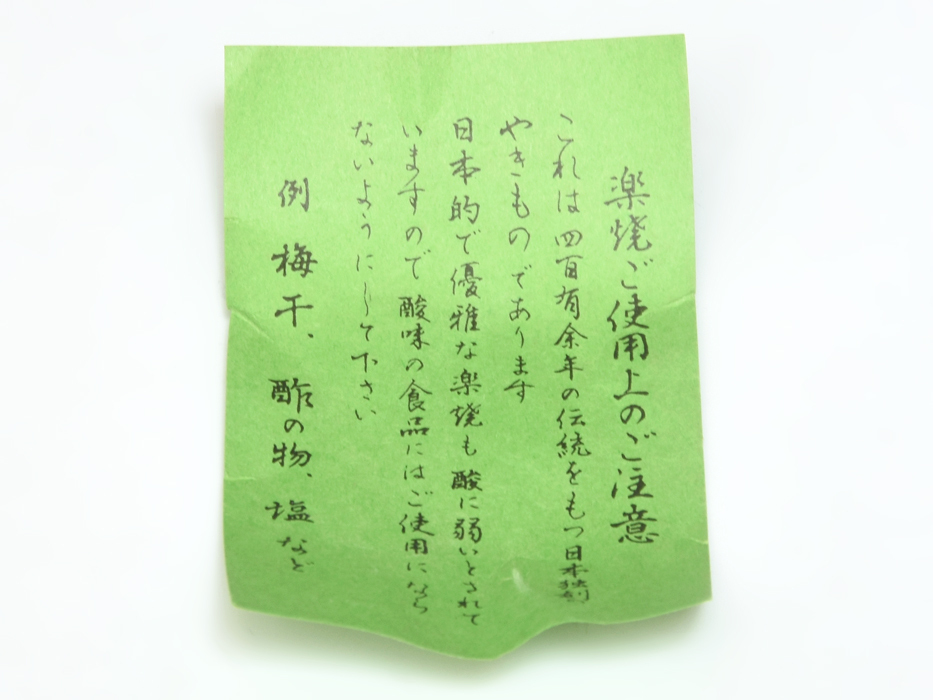 楽焼ご使用上のご注意
これは四百有余年の伝統をもつ日本独創
やきものであります
日本的で優雅な楽焼も酸に弱いとされて
いますので酸味の食品にはご使用になら
ないようにして下さい
例 梅干、酢の物、塩など